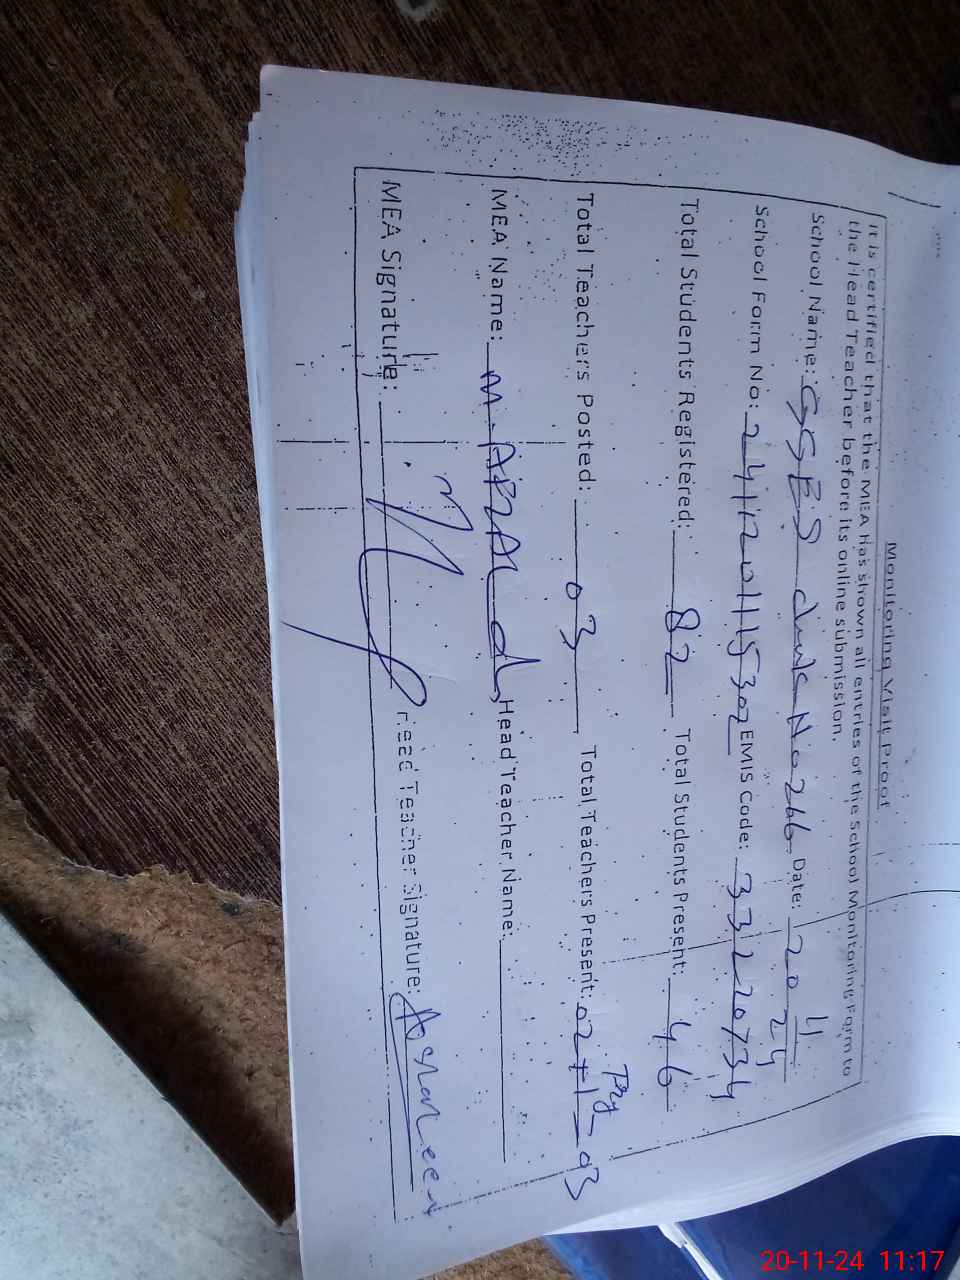 Monitoring Visit Proof
It is certified that the MEA has shown all entries of the School Monitoring Form to
the Head Teacher before its online submission.
School Name: GGES Chak No 266 Date: 20 11 24
School Form No: 241120115302 EMIS Code: 33220734
Total Students Registered: 82 Total Students Present: 46
Total Teachers Posted: 03 Total Teachers Present: 02+1=03
MEA Name: M. Head Teacher Name:
MEA Signature: Head Teacher Signature:
20-11-24 11:17